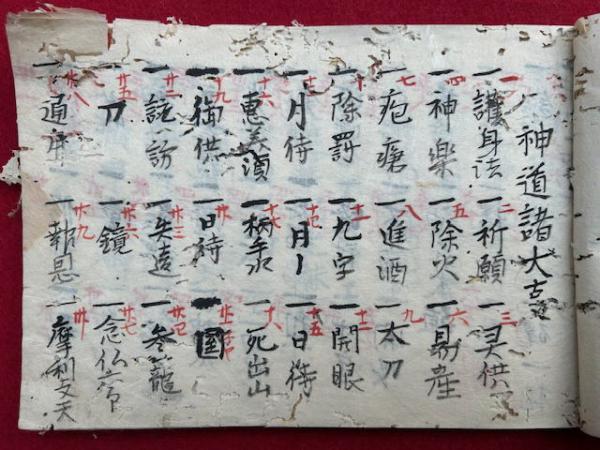 神道諸大
一 一 護身法 一 二 祈願 一 三 灵供
一 四 神楽 一 五 除火 一 六 易産
一 七 疱瘡 一 八 進酒 一 九 太刀
一 十 除罰 一 十一 九字 一 十二 開眼
一 月待 一 月 一 十五 日待
一 十六 恵美須 一 水 一 十八 死出山
一 十九 御供 一 廿 日待 一
一 廿二 諏訪 一 廿三 造 一 廿四 参籠
一 廿五 刀 一 廿六 鏡 一 廿七 念仏
一 廿八 通 一 廿九 報恩 一 卅 摩利支天